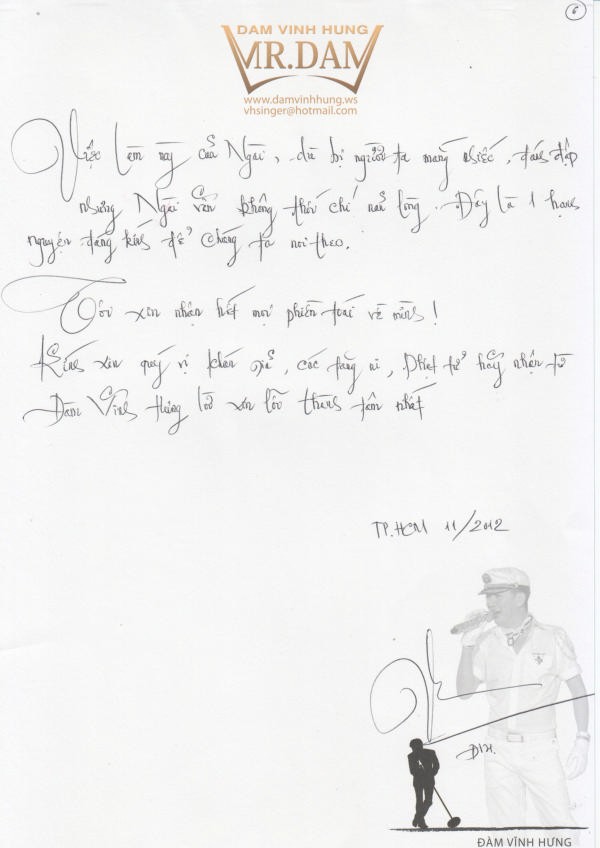 6
DAM VINH HUNG
MR.DAM
www.damvinhhung.ws
vhsinger@hotmail.com
Việc làm này của Ngài, dù bị người ta mắng nhiếc, đánh đập
nhưng Ngài vẫn không thối chí nản lòng. Đấy là 1 hạnh
nguyện đáng kính để chúng ta noi theo.
Tôi xin nhận hết mọi phiền toái về mình!
Kính xin quý vị khán giả, các tăng ni, Phật tử hãy nhận từ
Đàm Vĩnh Hưng lời xin lỗi thành tâm nhất
TP.HCM 11/2012
ĐVH.
ĐÀM VĨNH HƯNG